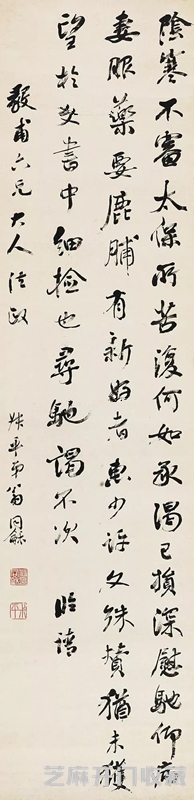 陰寒不審太保所苦復何如承渴已損深慰馳仰病
妻服藥要鹿脯有新好者惠少許久殊贊猶未獲
望於文書中細撿也尋馳謁不次 臨請
毅甫六兄大人法政
叔平弟翁同龢
芝麻开门收藏